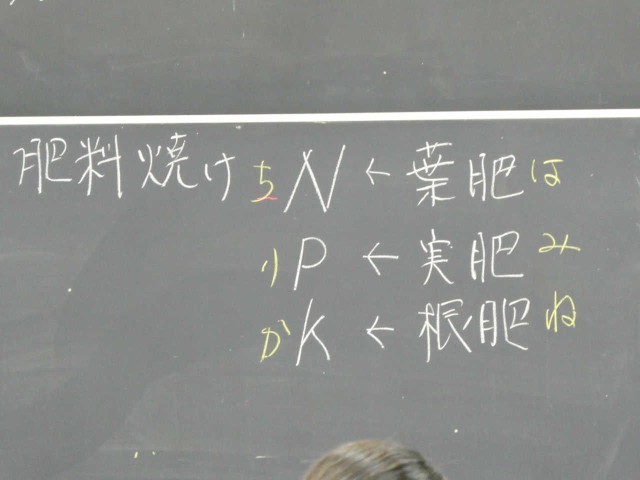 肥料焼け ちN←葉肥は
りP←実肥み
かK←根肥ね